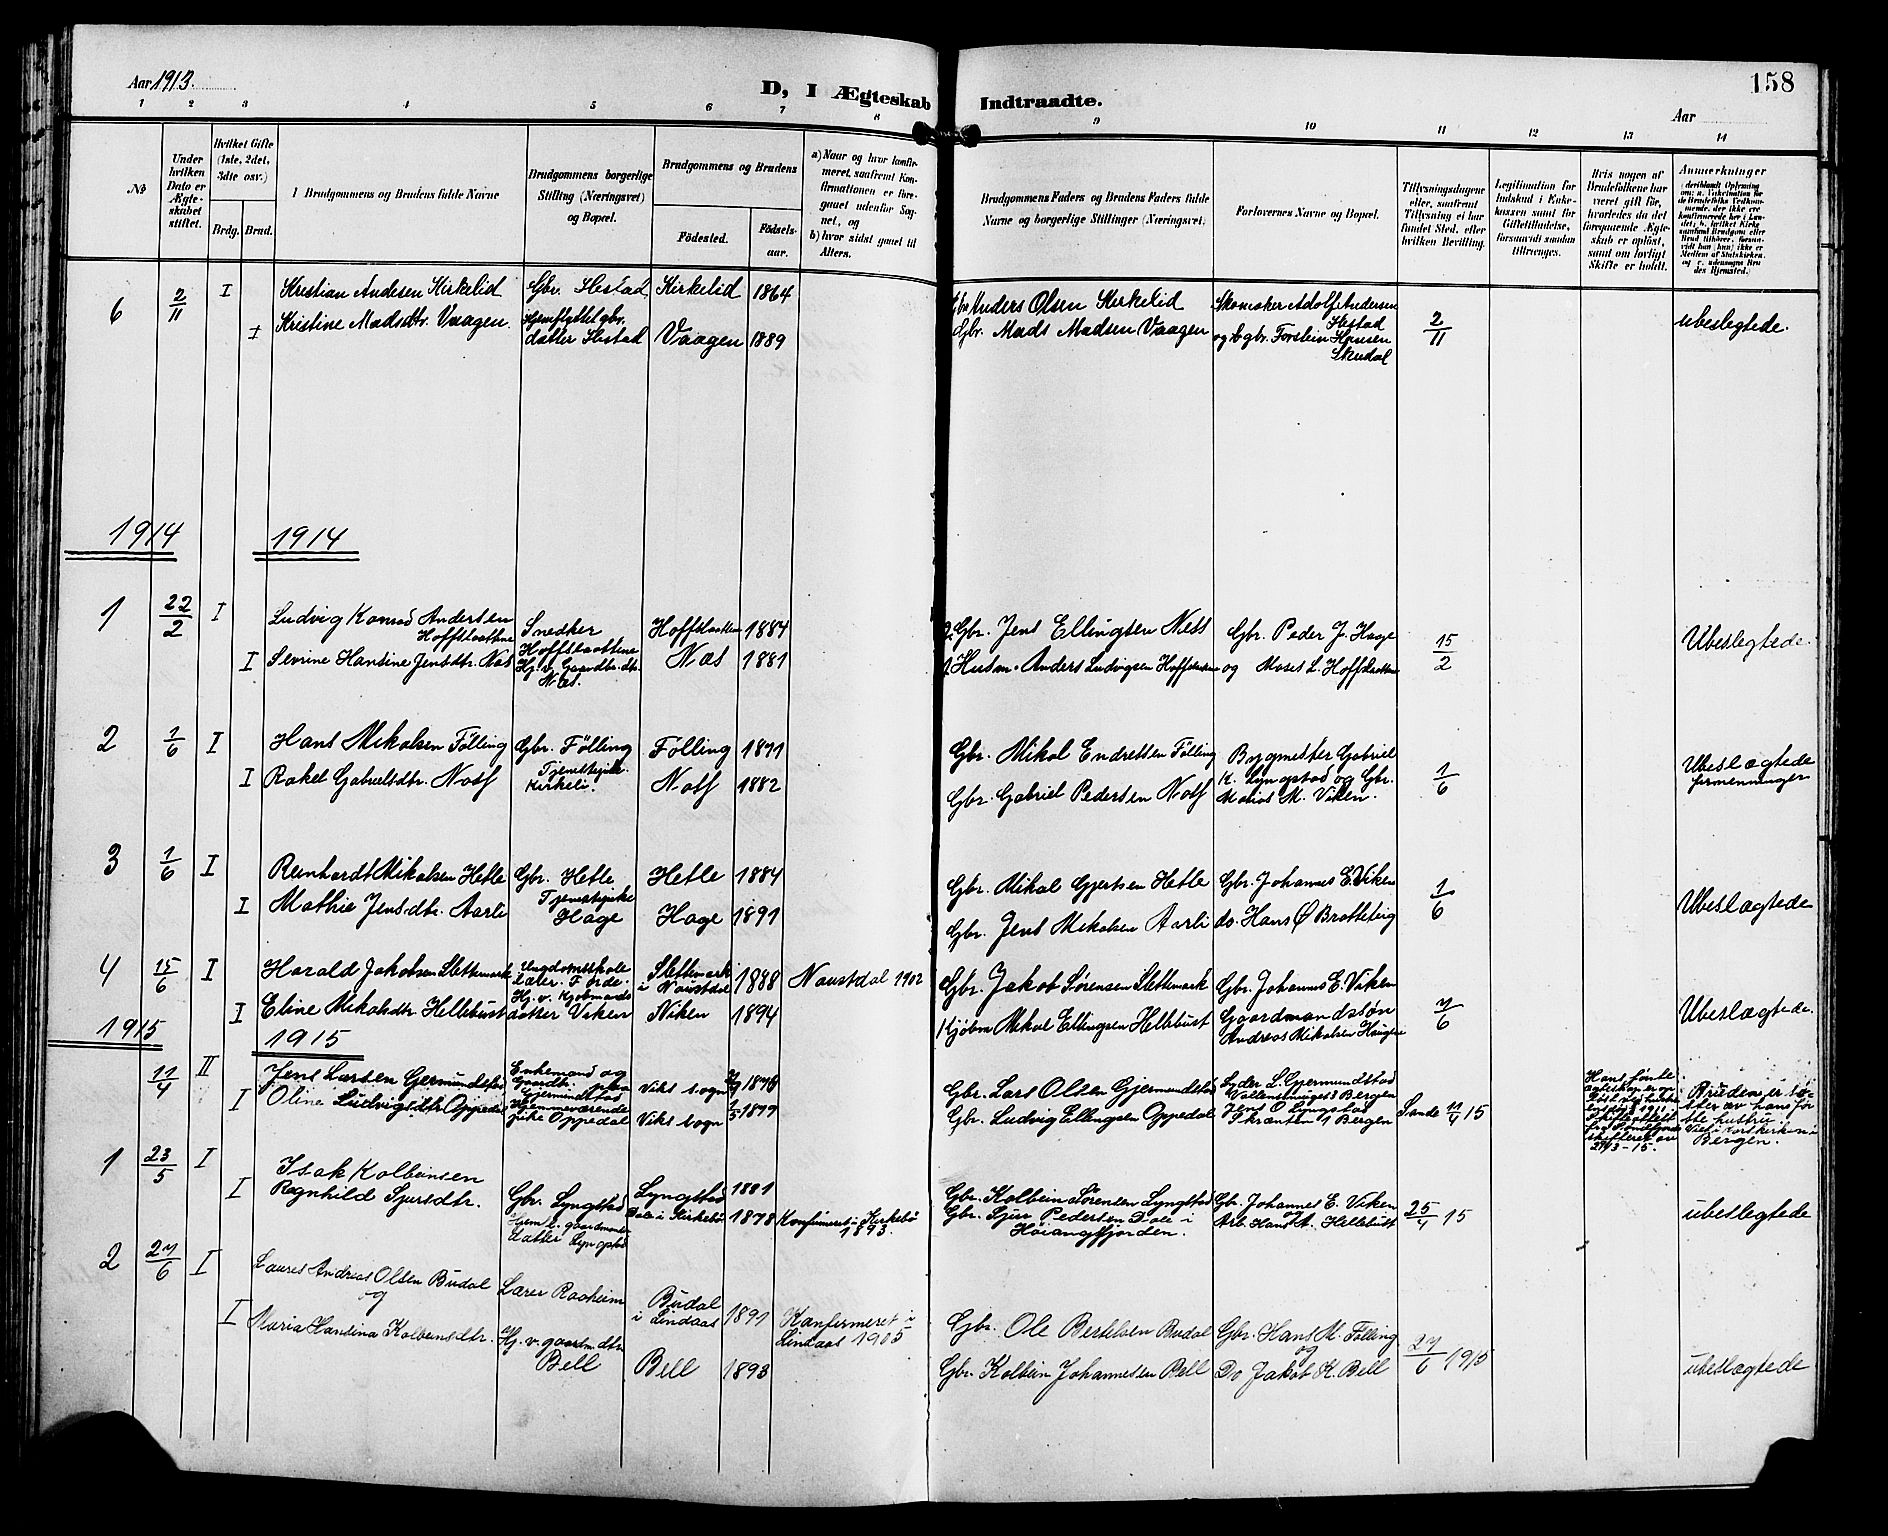 Aar 1913.
D, I Ægteskab Indtraadte.
158
Aar
1 2 3 4 5 6 7 8 9 10 11 12 13 14
No
Under hvilken Dato er Ægteskabet stiftet.
Hvilket Gifte (1ste, 2det, 3die osv.)
Brdg. Brud.
Brudgommens og Brudens fulde Navne
Brudgommens borgerlige Stilling (Næringsvei) og Bopæl.
Brudgommens og Brudens
Fødested.
Fødselsaar.
a) Naar og hvor konfirmeret, saafremt Konfirmationen er foregaaet udenfor Sognet, og
b) hvor sidst gaaet til Alters.
Brudgommens Faders og Brudens Faders fulde Navne og borgerlige Stillinger (Næringsvei)
Forlovernes Navne og Bopæl.
Tillysningsdagene eller, saafremt Tillysning ei har fundet Sted, efter hvilken Bevilling.
Legitimation for Indskud i Enkekassen samt for Giftetilladelse, forsaavidt saadan tiltrænges.
Hvis nogen af Brudefolkene har været gift før, hvorledes da det foregaaende Ægteskab er opløst, samt om lovligt Skifte er holdt.
Anmerkninger
6 2/11 I Kristian Andersen Kirkelid Gbr. Hestad Kirkelid 1864 Anders Olsen Kirkelid Skomaker Adolf Andersen Hestad
I Kristine Madsdtr. Vaagen. datter Hestad Vaagen 1889 Gbr. Mads Madsen Vaagen og gbr. Torstein Hansen Skudal 2/11 ubeslegtede.
1914 1914
1 22/2 I Ludvig Konrad Andersen Hoffslaattene Snedker Hoffslaattene Hoffslaatten 1884 Gbr. Jens Ellingsen Ness Gbr. Peder J. Hage 15/2 Ubeslegtede.
I Sevrine Hansine Jensdtr. Nas Hj. v. Gaardbr. dtr. Næs. Næs 1881 Husm. Anders Ludvigsen Hoffslaatten og Moses L. Hoffslaatten
2 7/6 I Hans Mikalsen Følling Gbr. Følling Følling 1871 Gbr. Mikal Endressen Følling Bygmester Gabriel K. Lyngstad og Gbr. Matias M. Viken. 1/6 Ubeslægtede
I Rakel Gabrielsdtr. Kirkeli. 1882 Gbr. Gabriel Pedersen
3 7/6 I Reinhardt Mikalsen Hetle Gbr. Hetle Hetle 1884 Gbr. Mikal Gjertsen Hetle Gbr. Johannes E. Viken 1/6 Ubeslægtede
I Mathie Jensdtr. Aarli Tjenestepike Hage Hage 1891 Gbr. Jens Mikalsen Aarli do. Hans Ø Brotteteig
4 15/6 I Harald Jakobsen Slettemark Ungdomsskole Lærer. Førde. Slettemark i Naustdal 1888 Naustdal 1902 Gbr. Jakob Sørensen Slettemark Gbr. Johannes E. Viken 7/6 Ubeslægtede.
I Eline Mikalsdtr Hellebust Hj. v. Kjøbmands datter Viken Viken 1894 Kjøbm Mikal Ellingsen Hellebust Gaardmandssøn Andreas Mikalsen Haugen
1915 1915
11/4 II Jens Larsen Gjermundstad Enkemand og Gaardbr. paa Gjermundstad Viks sogn Gbr. Lars Olsen Gjermundstad Peder L. Gjermundstad Bergen Sande 11/4 15
I Oline Ludvigsdtr Oppedal Hjemmeværende pike Oppedal Viks sogn Gbr. Ludvig Ellingsen Oppedal Jens O Lyngstad Bergen
Bruden er søster av hans første hustru. Viet i Korskirken i Bergen.
1 23/5 I Isak Kolbeinsen Gbr. Lyngstad Lyngstad 1881 Gbr. Kolbein Sørensen Lyngstad Gbr. Johannes E. Viken og Arb. Hans A. Hellebust 25/4 15 ubeslegtede
I Ragnhild Sjursdtr. datter Lyngstad Dale i Kirkebø 1878 Konfirmeret i Kirkebø 1893. Gbr. Sjur Pedersen Dale i Høiangsfjorden.
2 27/6 I Laures Andreas Olsen Budal Lærer Raaheim Budal i Lindaas 1891 Konfirmeret i Lindaas 1905 Gbr. Ole Bertelsen Budal Gbr. Hans M. Følling og 27/6 1915 ubeslægtede
og
I Maria Hansina Kolbeinsdtr. Hj. v. gaardm. dtr. Bell Bell 1893 Gbr. Kolbein Johannessen Bell Do Jakob K. Bell